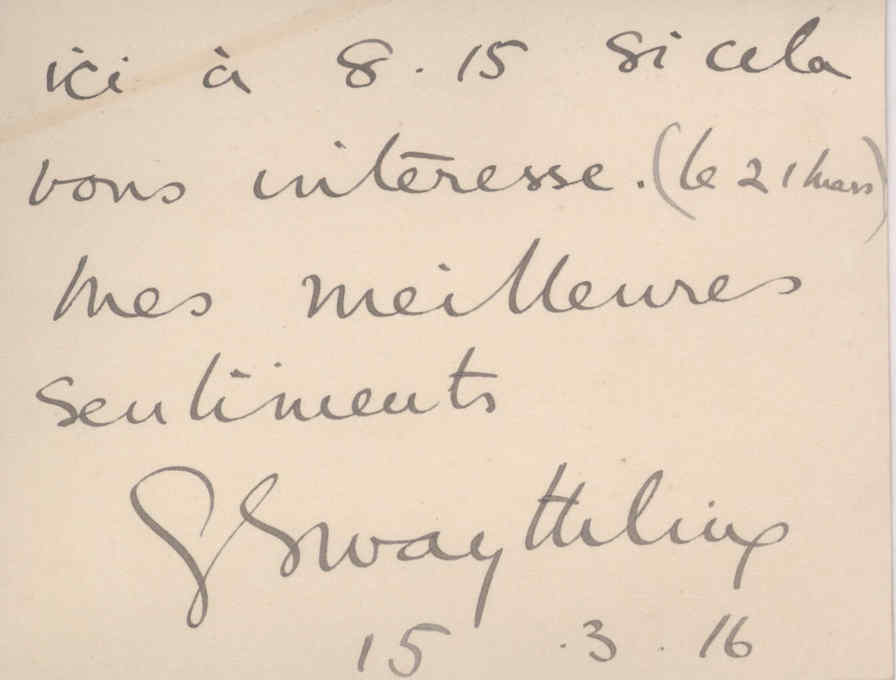 ici à 8.15 si cela
vous intéresse. (le 21 Mars)
Mes meilleures
sentiments
G Swaythling
15.3.16